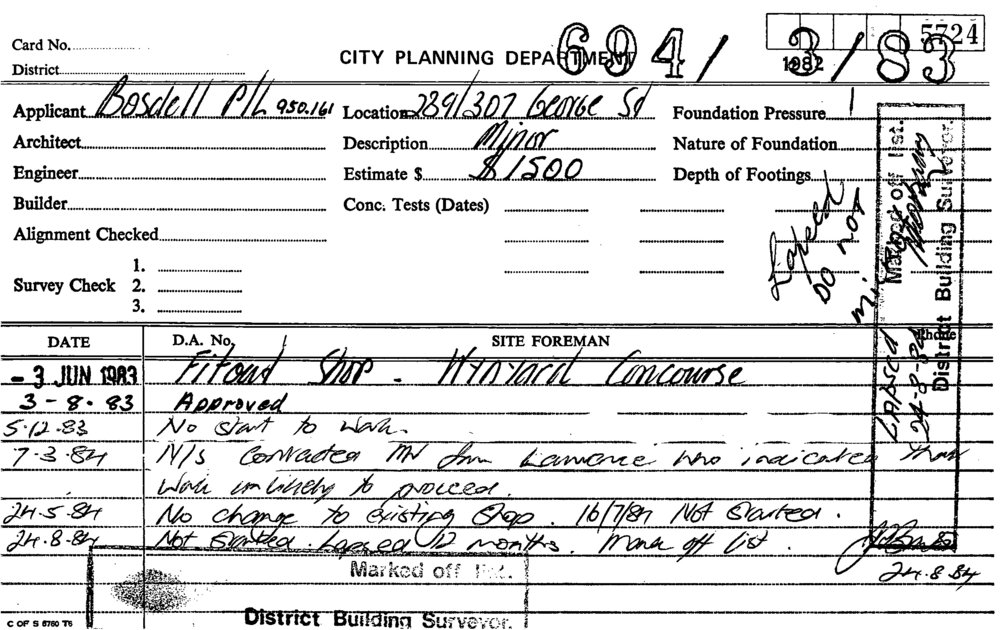 5724
Card No.
CITY PLANNING DEPARTMENT 694/3/83
1982
District
Applicant Bosdell P/L 950.161 Location 289/307 George St Foundation Pressure
Architect Description Minor Nature of Foundation
Engineer Estimate $ $1500 Depth of Footings
Builder Conc. Tests (Dates)
Alignment Checked
Lapsed
DO NOT
1.
Survey Check 2.
3.
Marked off list.
District Building Surveyor.
LAPSED
24-8-84
DATE D.A. No. SITE FOREMAN Phone
-3 JUN 1983 Fitout Shop - Wynyard Concourse
3-8-83 Approved
5.12.83 No start to work.
7.3.84 N/S Contacted Mr Jim Lawrence who indicated that
work unlikely to proceed.
24.5.84 No change to existing shop. 16/7/84 Not Started.
24.8.84 Not Started. Lapsed 12 months. Mark off list.
24.8.84
Marked off list.
District Building Surveyor.
C OF S 6760 T6